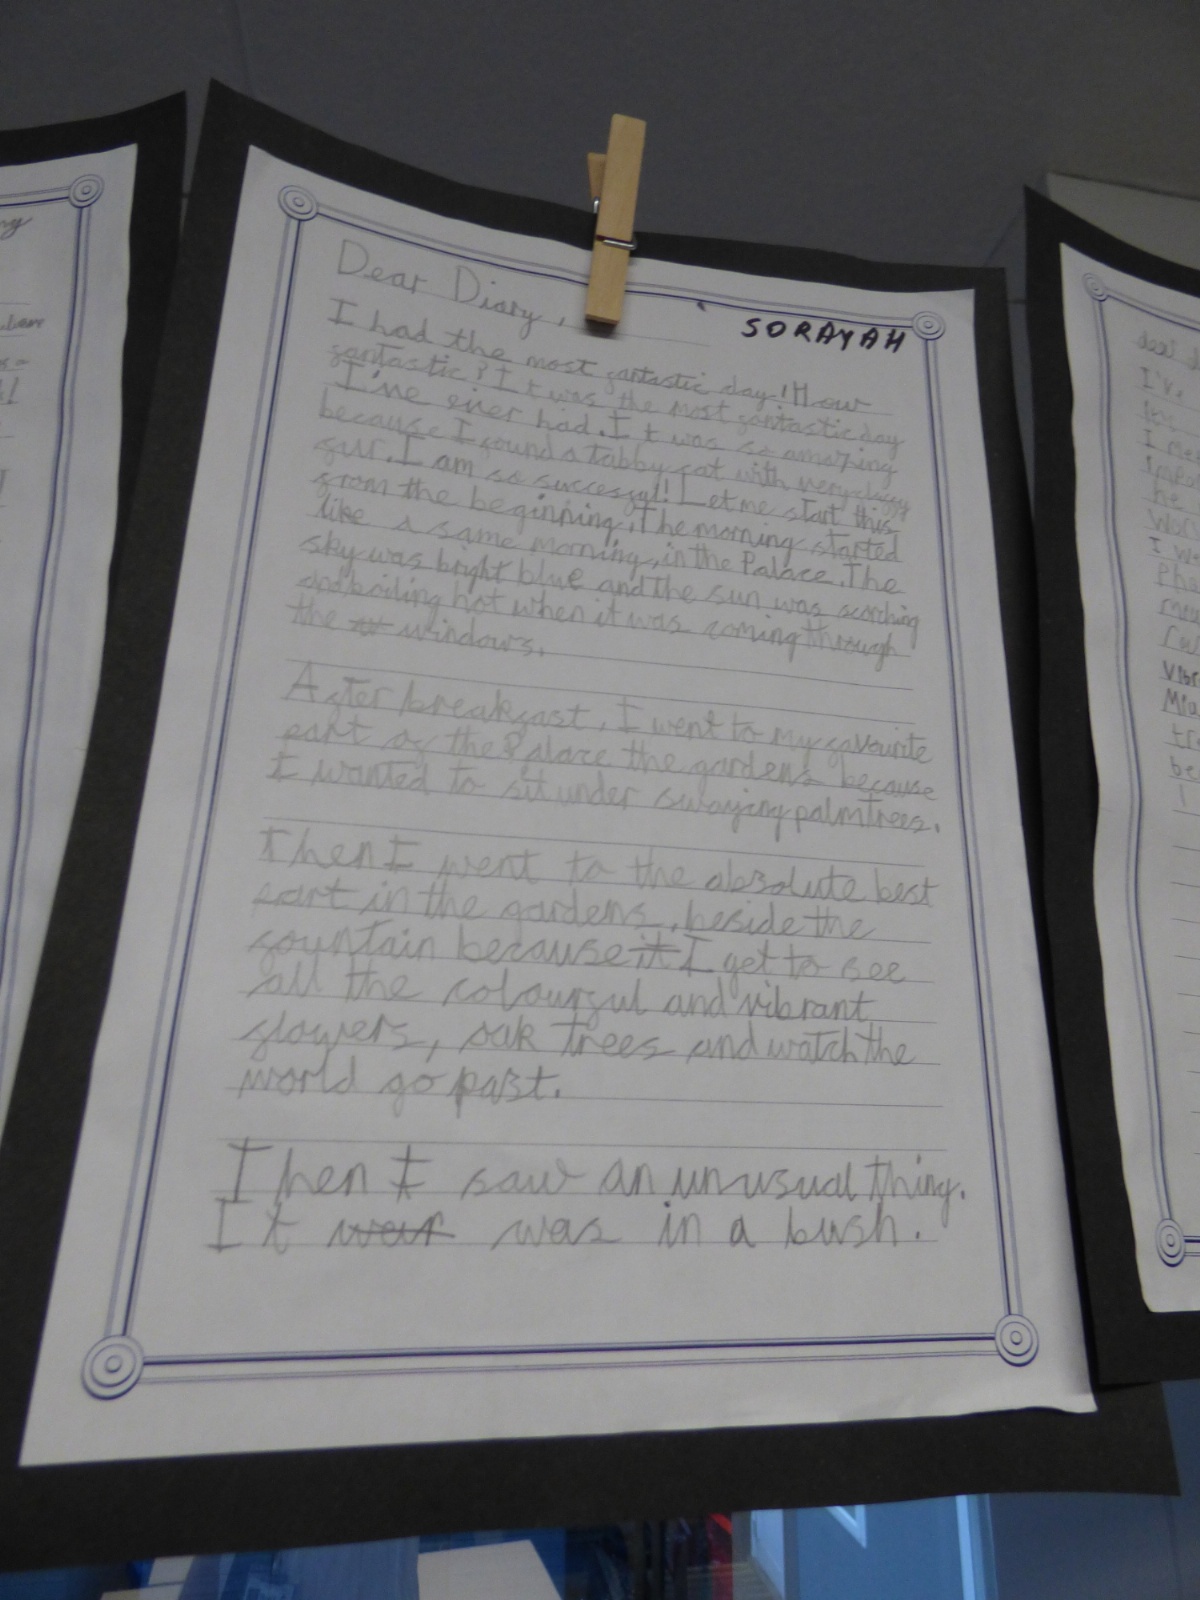 Dear Diary,
SORAYAH
I had the most fantastic day! How
fantastic? It was the most fantastic day
I've ever had. It was so amazing
because I found a tabby cat with very
fur. I am so successful! Let me start this
from the beginning. The morning started
like a same morning, in the Palace. The
sky was bright blue and the sun was scorching
and boiling hot when it was coming through
the windows.
After breakfast, I went to my favourite
part of the Palace the gardens because
I wanted to sit under swaying palmtrees.
Then I went to the absolute best
part in the gardens, beside the
fountain because it I get to see
all the colourful and vibrant
flowers, oak trees and watch the
world go past.
Then I saw an unusual thing.
It was in a bush.
dear
I've
I met
he
I we
be